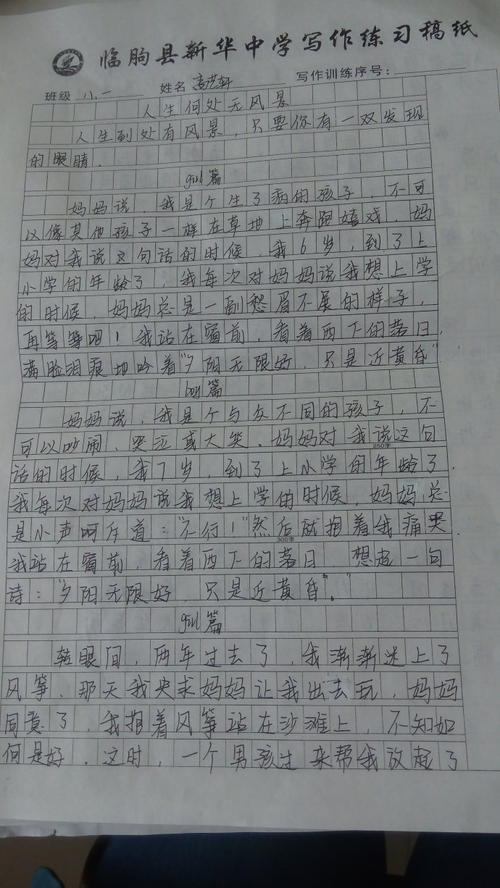 临朐县新华中学写作练习稿纸
班级 八.一 姓名 写作训练序号:
人生何处无风景
人生到处有风景,只要你有一双发现
的眼睛.
girl篇
妈妈说,我是个生了病的孩子,不可
以像其他孩子一样在草地上奔跑嬉戏.妈
妈对我说这句话的时候,我6岁,到了上
小学的年龄了,我每次对妈妈说我想上学
的时候,妈妈总是一副愁眉不展的样子,
再等等吧!我站在窗前,看着西下的落日,
满脸泪痕地吟着"夕阳无限好,只是近黄昏"
boy篇
妈妈说,我是个与众不同的孩子,不
可以吵闹、哭泣或大笑.妈妈对我说这句
话的时候,我7岁,到了上小学的年龄了.
我每次对妈妈说我想上学的时候,妈妈总
是小声呵斥道:"不行!"然后就抱着我痛哭.
我站在窗前,看着西下的落日,想起一句
诗:"夕阳无限好,只是近黄昏."
girl篇
转眼间,两年过去了,我渐渐迷上了
风筝.那天我央求妈妈让我出去玩,妈妈
同意了,我抱着风筝站在沙滩上,不知如
何是好.这时,一个男孩过来帮我放起了